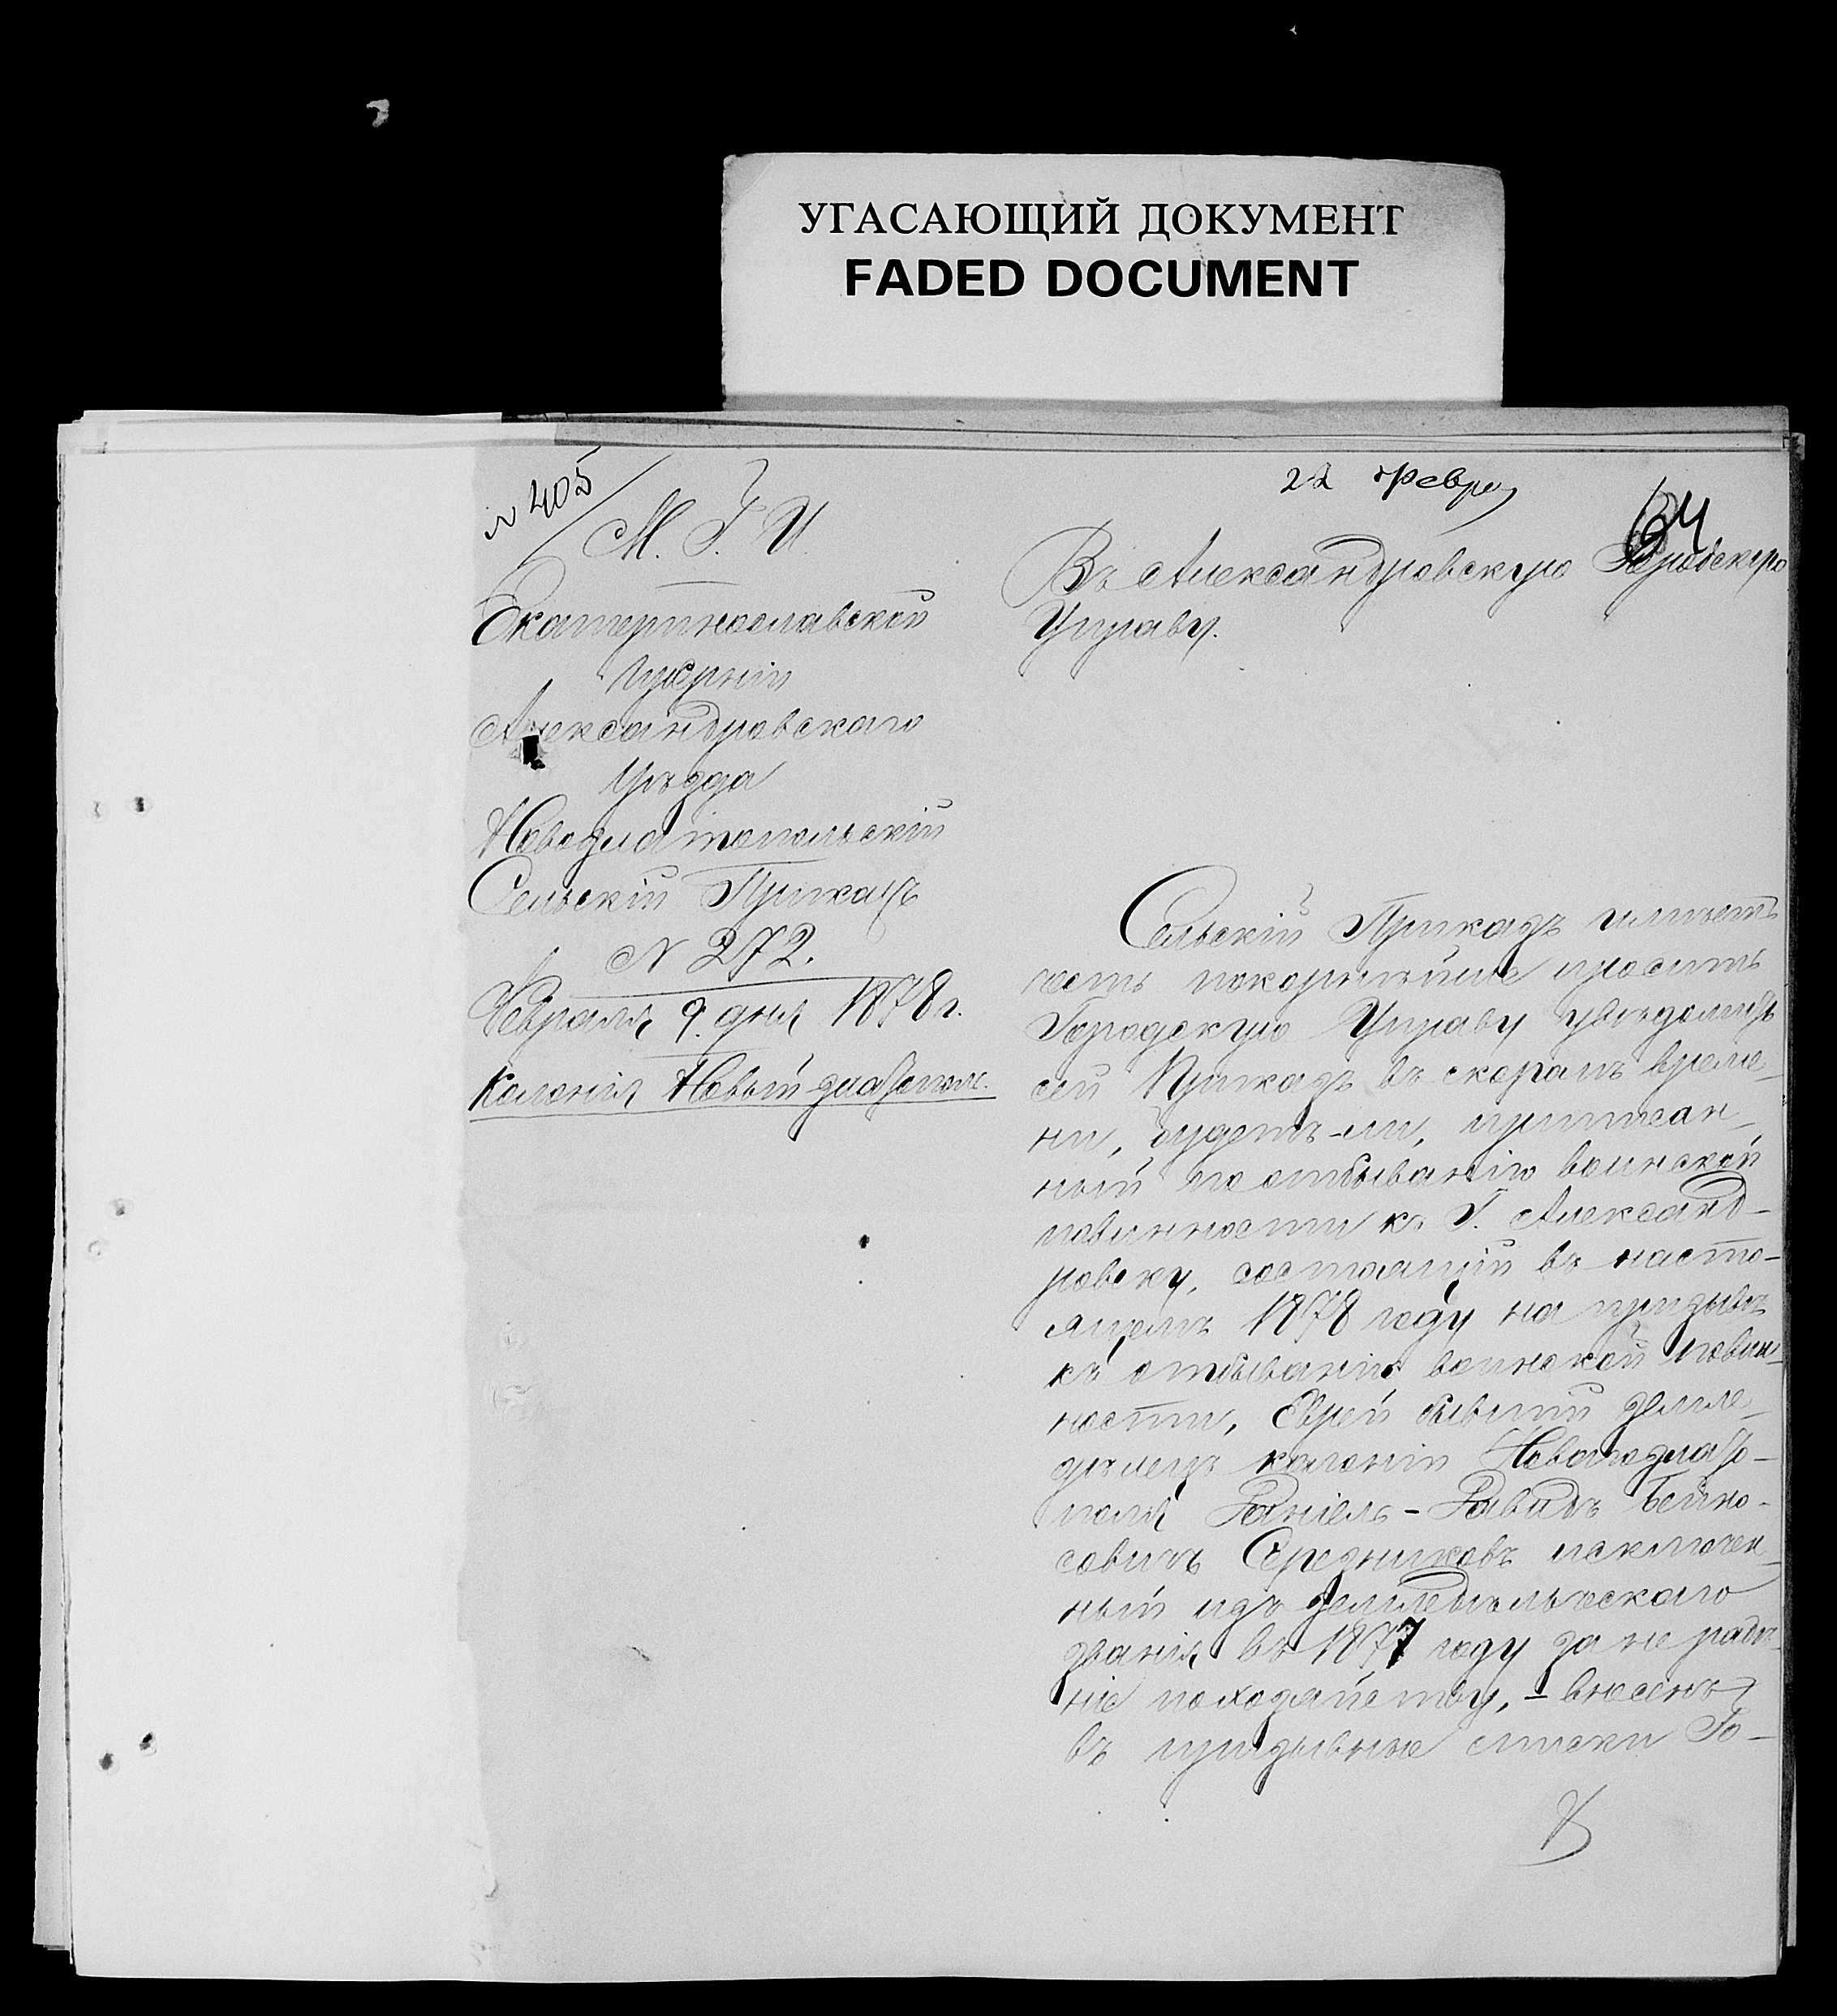 УГАСАЮЩИЙ ДОКУМЕНТ
FADED DOCUMENT
№ 405
22 Февр
64
М. Г. И.
Екатеринославской
Губерніи
Александровскаго
Уѣзда
Новозлатопольскій
Сельскій Приказъ
№ 272.
Февраля 9 дня 1878 г.
Колонія Новый Златополь.
Въ Александровскую Городскую
Управу.
Сельскій Приказъ имѣетъ
честь покорнѣйше просить
Городскую Управу увѣдомить
сей Приказъ въ скоромъ време-
ни, будетъ-ли, приписан-
ный по отбыванію воинской
повинности къ Г. Александ-
ровску, состоящій въ насто-
ящемъ 1878 году на призывѣ
къ отбыванію воинской повин-
ности, Еврей бывшій земле-
дѣлецъ колоніи Новозлато-
поля Даніель-Давидъ Бейно-
совичъ Середниковъ исключен-
ный изъ земледѣльческаго
званія въ 1877 году за не радѣ-
ніе по хозяйству, - внесенъ
въ призывные списки Го-